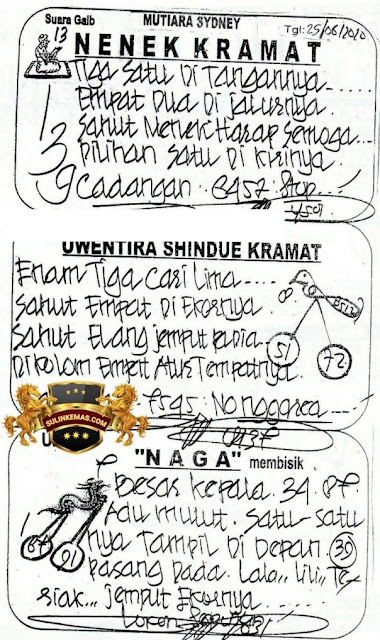 Suara Gaib MUTIARA SYDNEY Tgl: 25/06/2020
13 NENEK KRAMAT
Tiga Satu Di Tangannya.....
Empat Dua Di jalurnya
Sahut Menek Harap Semoga...
Pilihan Satu Di Kirinya
Cadangan. 8457. Stop
1
3
9
4501
UWENTIRA SHINDUE KRAMAT
Enam Tiga Cari Lima ....
Sahut Empat Di Ekornya
8
Sahut Elang jemput Ka Dia
51 72
Di Kolom Empat Atus Tempatnya
SULINKEMAS.COM
"NAGA" membisik
Besar Kepala. 34. 87.
Adu mulut. Satu-satu
nya Tampil Di Depan. 39
pasang pada. Lala,, lili,, Te
siak... jemput Ekornya
1 87 91